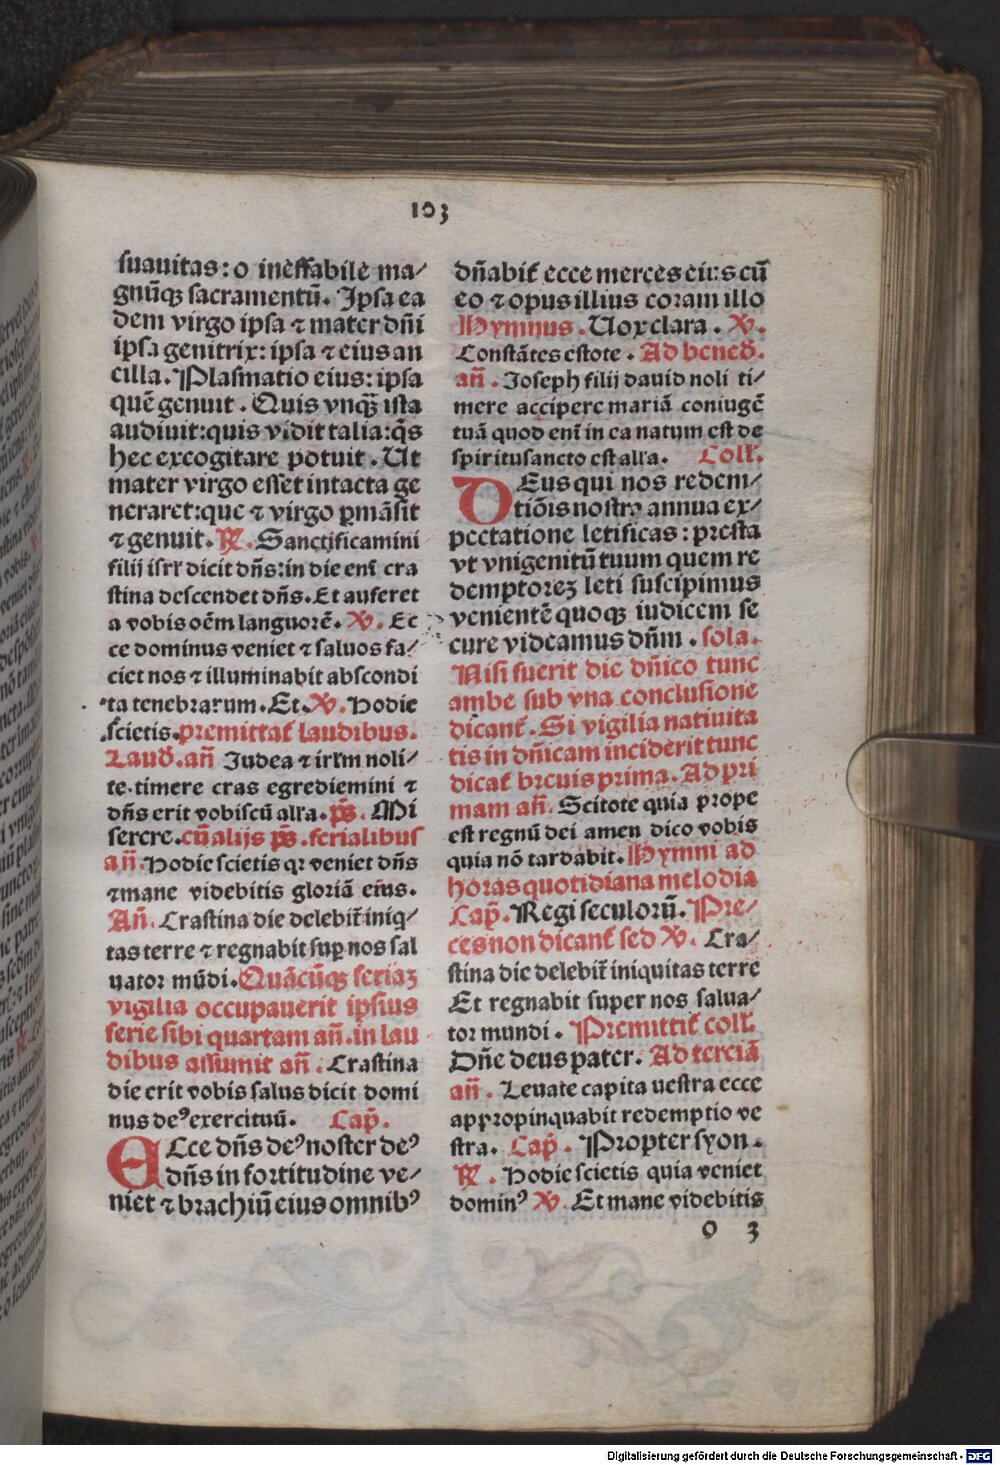 103
suauitas: o ineffabile ma/
gnūqꝫ sacramentū. Ipsa ea
dem virgo ipsa ⁊ mater dn̄i
ipsa genitrix: ipsa ⁊ eius an
cilla. Plasmatio eius: ipsa
quē genuit. Quis vnqꝫ̄ ista
audiuit: quis vidit talia: q̄s
hec excogitare potuit. Ut
mater virgo esset intacta ge
neraret: que ⁊ virgo ꝑmāsit
⁊ genuit. ℟. Sanctificamini
filij isrl' dicit dn̄s: in die eni̅ cra
stina descendet dn̄s. Et auferet
a vobis oēm languorē. ℣. Ec
ce dominus veniet ⁊ saluos fa/
ciet nos ⁊ illuminabit abscondi
ta tenebrarum. Et. ℣. Hodie
scietis. premittat̉ laudibus.
Laud̉. an̄ Iudea ⁊ irl'm noli/
te. timere cras egrediemini ⁊
dn̄s erit vobiscū all'a. ps̄. Mi
serere. cū alijs ps̄. ferialibus
an̄. Hodie scietis qꝛ veniet dn̄s
⁊ mane videbitis gloriā eius.
An̄. Crastina die delebit̉ iniq̇/
tas terre ⁊ regnabit suꝑ nos sal
uator mūdi. Quācūqꝫ feriaꝫ
vigilia occupauerit ipsius
ferie sibi quartam an̄. in lau
dibus assumit an̄. Crastina
die erit vobis salus dicit domi
nus deꝰ exercituū. Cap̄.
ECce dn̄s deꝰ noster deꝰ
dn̄s in fortitudine ve/
niet ⁊ brachiū eius omnibꝰ
dn̄abit̉ ecce merces eius cū
eo ⁊ opus illius coram illo
Hymnus. Uox clara. ℣.
Constātes estote. Ad bened̉.
an̄. Joseph filij dauid noli ti/
mere accipere mariā coniugē
tuā quod eni̅ in ea natum est de
spiritusancto est all'a. Coll̉.
DEus qui nos redem/
tiōis nostre annua ex/
pectatione letificas: presta
vt vnigenitū tuum quem re
demptoreꝫ leti suscipimus
venientē quoqꝫ iudicem se
cure videamus dn̄m. sola.
Nisi fuerit die dn̄ico tunc
ambe sub vna conclusione
dicant̉. Si vigilia natiuita
tis in dn̄icam inciderit tunc
dicat̉ breuis prima. Ad pri
mam an̄. Scitote quia prope
est regnū dei amen dico vobis
quia nō tardabit. Hymni ad
horas quotidiana melodia
Cap̄. Regi seculorū. Pre/
ces non dicant̉ sed ℣. Cra/
stina die delebit̉ iniquitas terre
Et regnabit super nos salua/
tor mundi. Premittit̉ coll̉.
Dn̄e deus pater. Ad terciā
an̄. Leuate capita uestra ecce
appropinquabit redemptio ve
stra. Cap̄. Propter syon.
℟. Hodie scietis quia veniet
dominꝰ ℣. Et mane videbitis
o 3
Digitalisierung gefördert durch die Deutsche Forschungsgemeinschaft - DFG